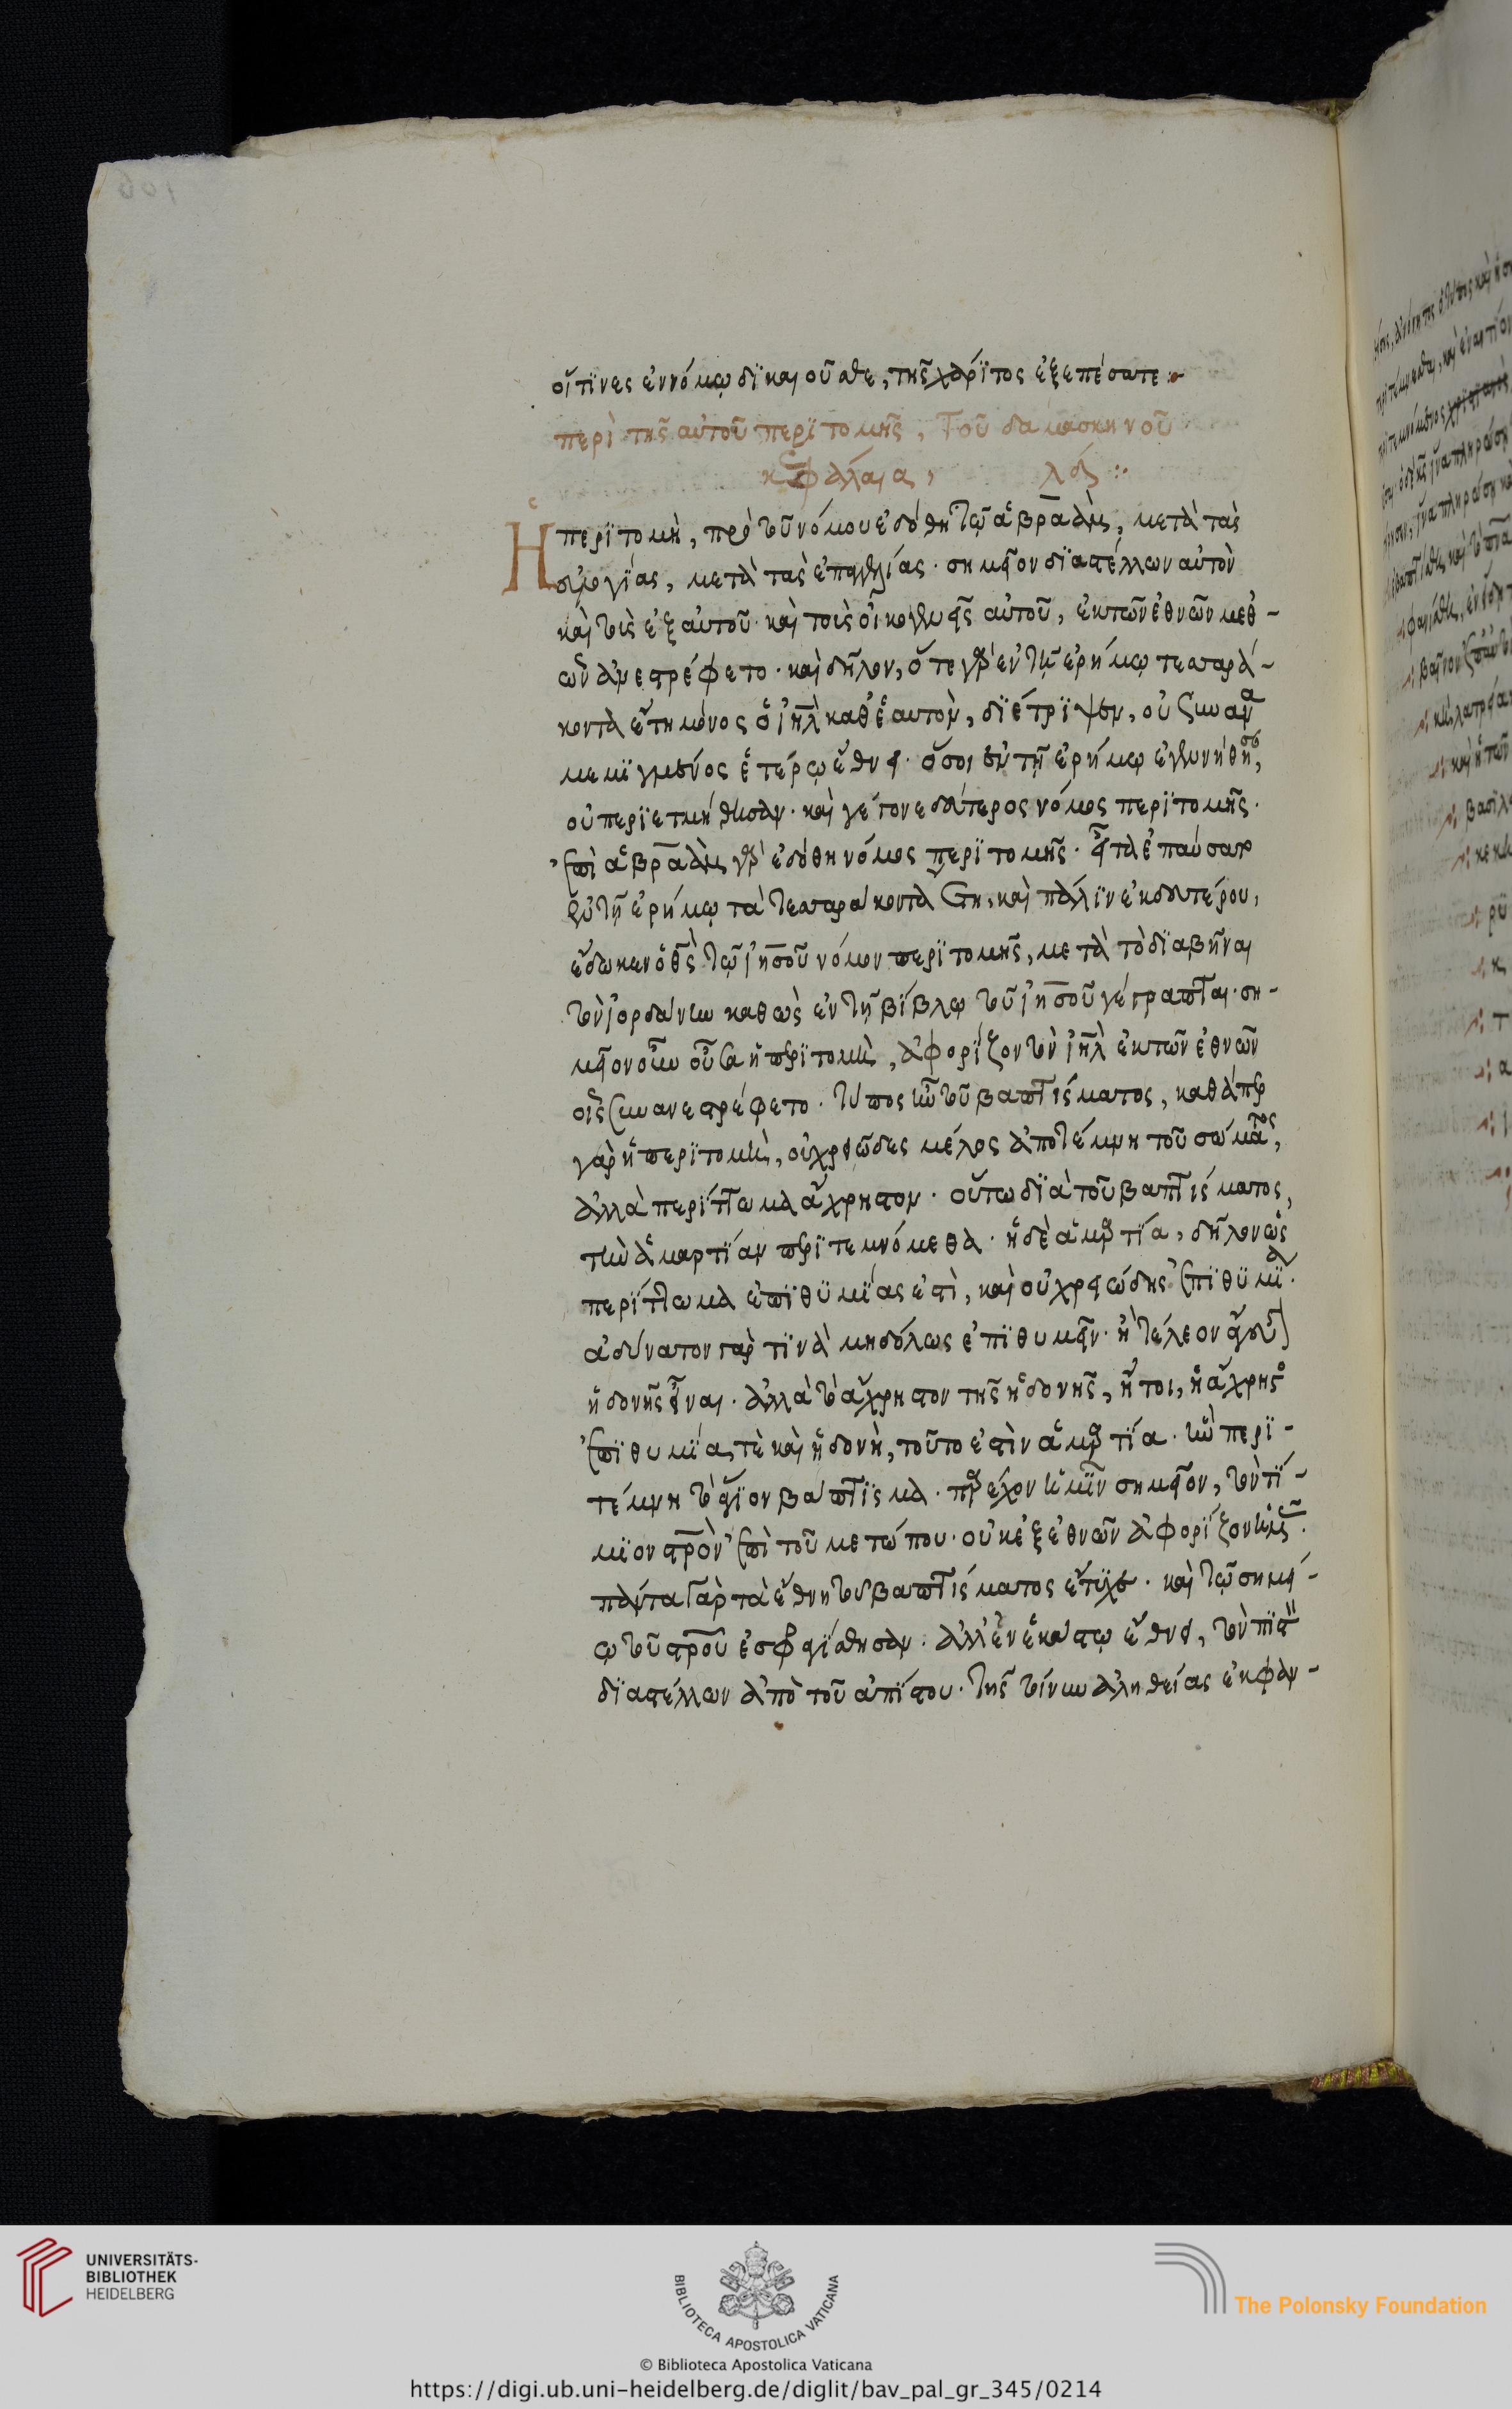 οἵτϊνες ἐν νόμῳ δϊκαιοῦσθε, τῆς χάρϊτος ἐξεπέσατε :-
περὶ τῆς αὐτοῦ περϊτομῆς, Τοῦ δαμασκηνοῦ
κεφάλαια,
Ἡ περϊτομὴ, πρὸ τοῦ νόμου ἐδόθη τῷ ἁβραὰμ, μετὰ τὰς
εὐλογίας, μετὰ τὰς ἐπαγγελίας· σημεῖον δϊαστέλλων αὐτὸν
καὶ τοὺς ἐξ αὐτοῦ· καὶ τοὺς οἰκογενεῖς αὐτοῦ, ἐκ τῶν ἐθνῶν μεθ-
ὧν ἀνεστρέφετο· καὶ δῆλον, ὅτε γὰρ ἐν τῇ ἐρήμῳ τεσσαρά-
κοντα ἔτη μόνος ὁ ἰηλ καθ' ἑαυτὸν, δϊέτρϊψεν, οὐ συνανα
μεμϊγμένος ἑτέρῳ ἔθνει· ὅσοι ἐν τῇ ἐρήμῳ ἐγεννήθησαν,
οὐ περϊετμήθησαν· καὶ γέγονε δεύτερος νόμος περϊτομῆς.
ἐπὶ ἁβραὰμ γὰρ ἐδόθη νόμος περϊτομῆς· εἶτα ἐπαύσατο
ἐν τῇ ἐρήμῳ τὰ τεσσαράκοντα ἔτη, καὶ πάλϊν ἐκ δευτέρου,
ἔδωκεν ὁ θς τῷ ἰησοῦ νόμον περϊτομῆς, μετὰ τὸ δϊαβῆναι
τὸν ἰορδάνην καθὼς ἐν τῇ βίβλῳ τοῦ ἰησοῦ γέγραπται· ση-
μεῖον οὖν οὖσα ἡ περϊτομὴ, ἀφορίζον τὸν ἰηλ ἐκ τῶν ἐθνῶν
οἷς συνανεστρέφετο· τύπος ἦν τοῦ βαπτίσματος, καθάπερ
γὰρ ἡ περϊτομὴ, οὐ χρειῶδες μέλος ἀποτέμνη τοῦ σώματος,
ἀλλὰ περίττωμα ἄχρηστον· οὕτω δϊὰ τοῦ βαπτίσματος,
τὴν ἁμαρτίαν περϊτεμνόμεθα· ἡ δὲ ἁμαρτία, δῆλον ὡς
περίττωμα ἐπϊθϋμίας ἐστὶ, καὶ οὐ χρειώδης ἐπϊθϋμία.
ἀδύνατον γὰρ τϊνὰ μηδόλως ἐπϊθυμεῖν· ἢ τέλεον ἄγευστον
ἡδονῆς εἶναι· ἀλλὰ τὸ ἄχρηστον τῆς ἡδονῆς, ἤτοι, ἡ ἄχρηστος
ἐπϊθυμία, τὲ καὶ ἡδονὴ, τοῦτο ἐστὶν ἁμαρτία· ἣν περϊ-
τέμνη τὸ ἅγϊον βάπτϊσμα· παρέχον ἡμῖν σημεῖον, τὸν τί-
μϊον στρον ἐπὶ τοῦ μετώπου· οὐκ ἐξ ἐθνῶν ἀφορίζον ἡμᾶς.
πάντα γὰρ τὰ ἔθνη τοῦ βαπτίσματος ἔτϋχε· καὶ τῷ σημεί-
ῳ τοῦ στρου ἐσφραγίσθησαν· ἀλλ' ἐν ἑκάστῳ ἔθνει, τὸν πϊστὸν
δϊαστέλλων ἀπὸ τοῦ ἀπίστου· τῆς τοίνυν ἀληθείας ἐκφαν-
UNIVERSITÄTS-
BIBLIOTHEK
HEIDELBERG
BIBLIOTECA APOSTOLICA VATICANA
The Polonsky Foundation
© Biblioteca Apostolica Vaticana
https://digi.ub.uni-heidelberg.de/diglit/bav_pal_gr_345/0214